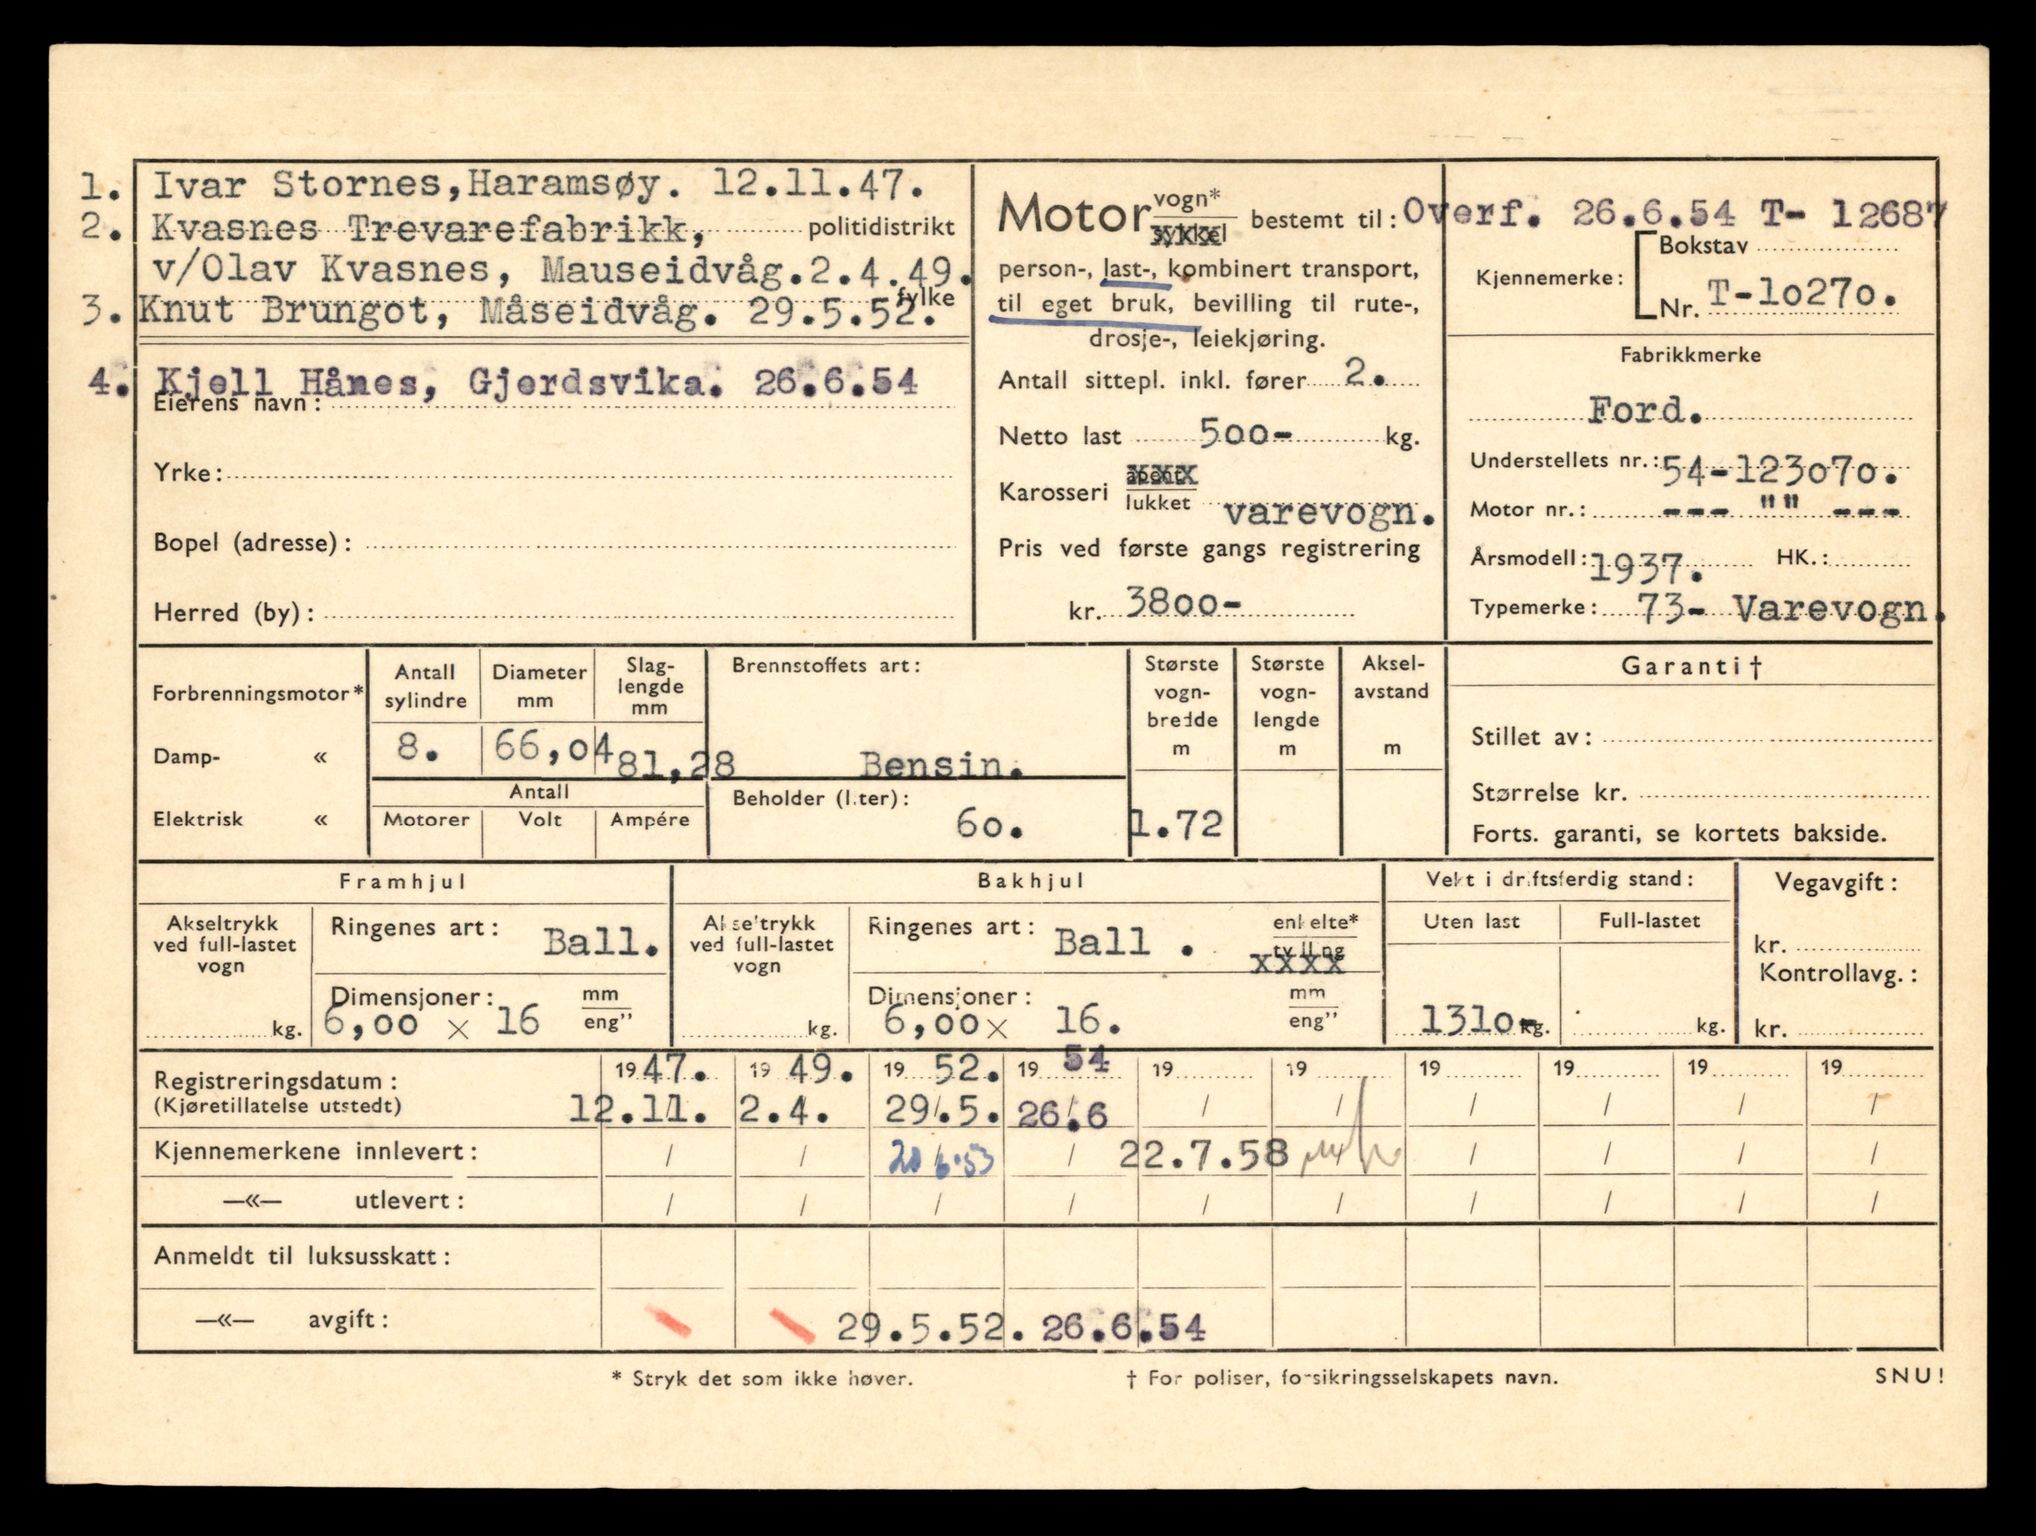 1. Ivar Stornes,Haramsøy. 12.11.47.
2. Kvasnes Trevarefabrikk, politidistrikt
v/Olav Kvasnes, Mauseidvåg.2.4.49.
fylke
3. Knut Brungot, Måseidvåg. 29.5.52.
4. Kjell Hånes, Gjerdsvika. 26.6.54
Eierens navn:
Yrke:
Bopel (adresse):
Herred (by):
Motor vogn*
sykkel
bestemt til:
person-, last-, kombinert transport,
til eget bruk, bevilling til rute-,
drosje-, leiekjøring.
Antall sittepl. inkl. fører 2.
Netto last 500- kg.
Karosseri åpent
lukket varevogn.
Pris ved første gangs registrering
kr. 3800-
Overf. 26.6.54 T- 12687
Kjennemerke:
Bokstav
Nr. T-10270.
Fabrikkmerke
Ford.
Understellets nr.: 54-123070.
Motor nr.: --- "" ---
Årsmodell: 1937. HK.:
Typemerke: 73- Varevogn.
Forbrenningsmotor*
Damp- «
Elektrisk «
Antall sylindre
8.
Diameter mm
66,04
Slag-
lengde
mm
81,28
Antall
Motorer Volt Ampére
Brennstoffets art:
Bensin.
Beholder (liter):
60.
Største
vogn-
bredde
m
1.72
Største
vogn-
lengde
m
Aksel-
avstand
m
Garanti†
Stillet av:
Størrelse kr.
Forts. garanti, se kortets bakside.
Framhjul
Akseltrykk
ved full-lastet
vogn
kg.
Ringenes art: Ball.
Dimensjoner: mm
6,00 x 16 eng”
Bakhjul
Akseltrykk
ved full-lastet
vogn
kg.
Ringenes art: Ball . enkelte*
tvilling xxxx
Dimensjoner: mm
6,00x 16. eng”
Vekt i driftsferdig stand:
Uten last Full-lastet
1310- kg. kg.
Vegavgift:
kr.
Kontrollavg.:
kr.
Registreringsdatum: 19 47. 19 49. 19 52. 19 54 19 19 19 19 19 19
(Kjøretillatelse utstedt) 12.11. 2.4. 29.5. 26.6 / / / / / /
Kjennemerkene innlevert: / / 20/6.53 / 22.7.58 / / / / /
—«— utlevert: / / / / / / / / / /
Anmeldt til luksusskatt:
—«— avgift: 29.5.52. 26.6.54
* Stryk det som ikke høver. † For poliser, forsikringsselskapets navn. SNU!